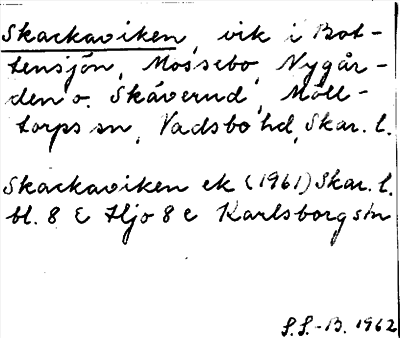 Skackaviken, vik i Bot-
tensjön, Mossebo, Nygår-
den o. Skáverud, Möll-
torps sn, Vadsbo hd, Skar. l.
Skackaviken ek (1961) Skar. l.
bl. 8 E Hjo 8 e Karlsborg stn
S.S.-B. 1962